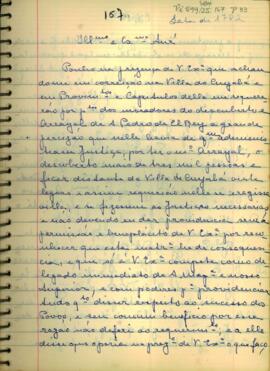 157
Sala de 1782
Ill.mo e Ex.mo Snr.
Ponho na prezença de V. Ex.a que achan
do-me em correição na Villa do Cuyabá e
em Provim.tos e Capitulos della me requere
rão p.te dos moradores do descuberto e
Arrayal de S. Pedro d'El Rey a grande
precizão que nelle havia de q.m Adminis
trasse Justiça, por ter o m.mo Arrayal, e
descuberto mais de tres mil pessoas e
ficar distante da Villa do Cuyabá vinte
legoas, assim requerião
villa, e se fizessem as Justiças necessarias
e não devendo eu dar providencia, sem a
permissão e beneplacito de V. Ex.a por reco
nhecer que esta materia hé de consequen
cia, e que só a V. Ex.a compete como de
legado immediato de A Mag.e e nosso
Superior, e com poderes p.a providenciar
tudo q.to disser respeito ao sucesso dos
Povos, e seu commum beneficio por essa
razão não deferi ao requerim.to, e a elle
disse que a poria na prez.a de V. Ex.a o que faço,